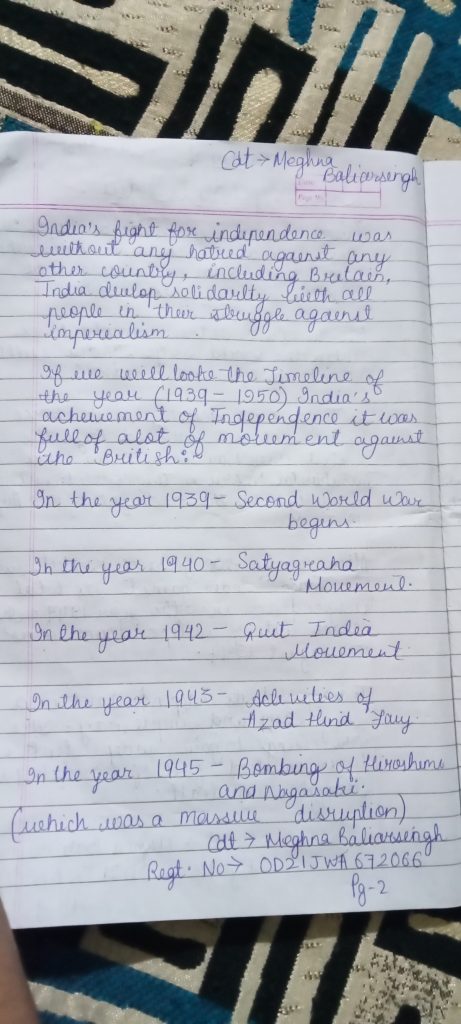 Cdt → Meghna
Baliarsingh
Page No.
India's fight for independence was
without any hatred against any
other country, including Britain,
India develop solidarity with all
people in their struggle against
imperialism.
If we will looke the Timeline of
the year (1939 - 1950) India's
achievement of Independence it was
full of alot of movement against
the British:-
In the year 1939 - Second World War
begins.
In the year 1940 - Satyagraha
Movement.
In the year 1942 - Quit India
Movement.
In the year 1943 - Activities of
Azad Hind Fauj.
In the year 1945 - Bombing of Hiroshima
and Nagasaki.
(which was a massive disruption)
Cdt → Meghna Baliarsingh
Regt. No → OD21JWA672066
Pg-2